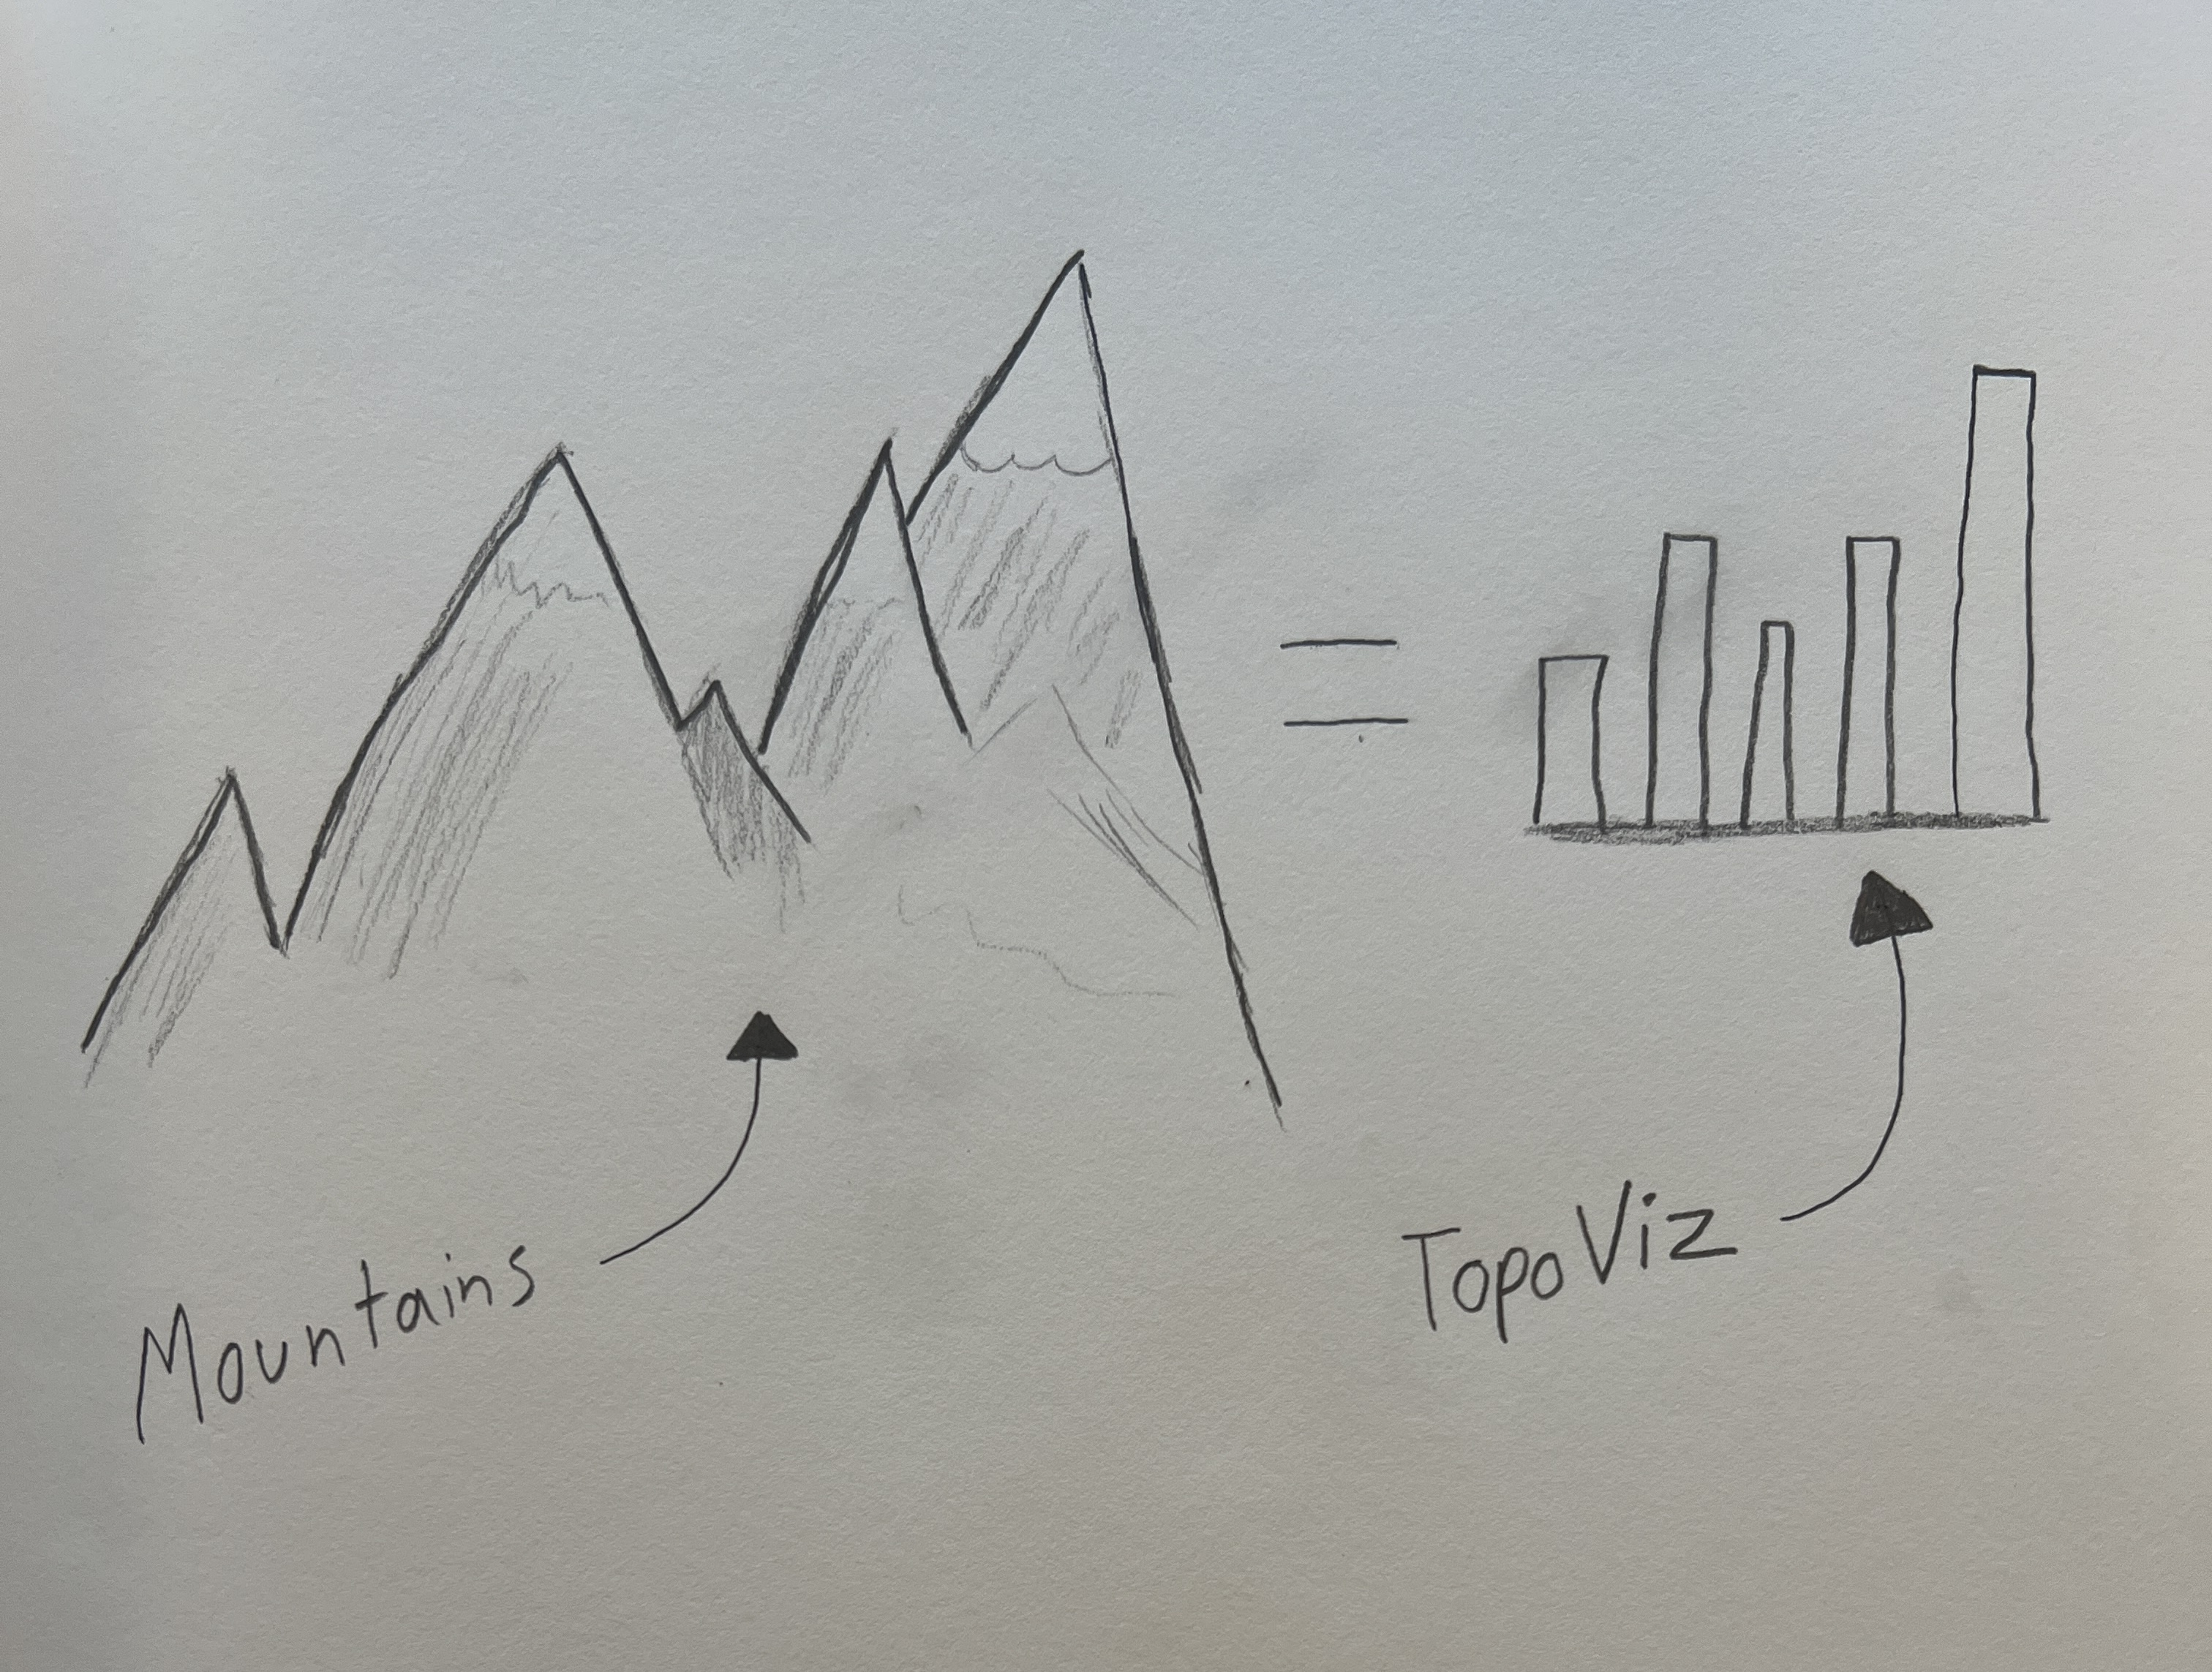 =
Mountains
TopoViz